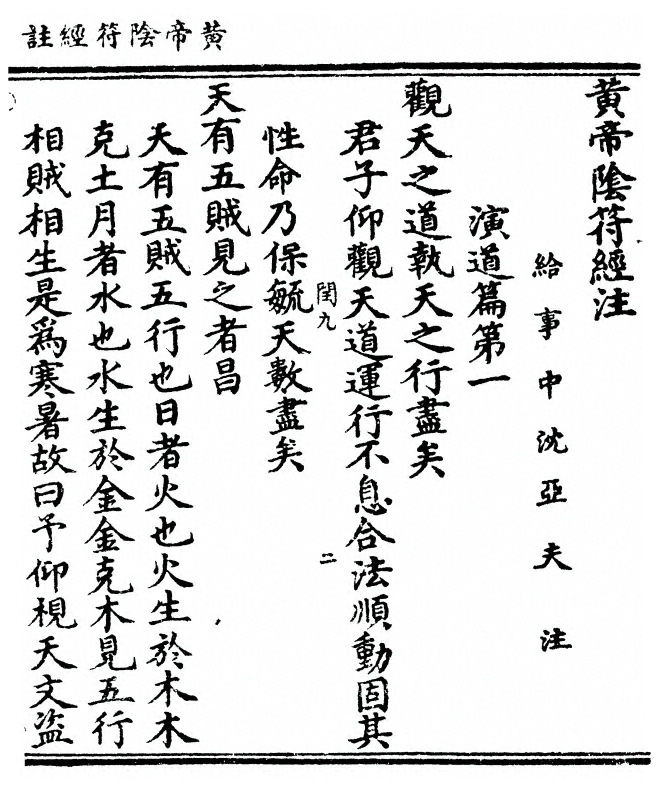 黃帝陰符經註
黃帝陰符經注
給事中沈亞夫注
演道篇第一
觀天之道執天之行盡矣
君子仰觀天道運行不息合法順動固其
閏九
二
性命乃保毓天數盡矣
天有五賊見之者昌
天有五賊五行也日者火也火生於木木
克土月者水也水生於金金克木見五行
相賊相生是爲寒暑故曰予仰視天文盜